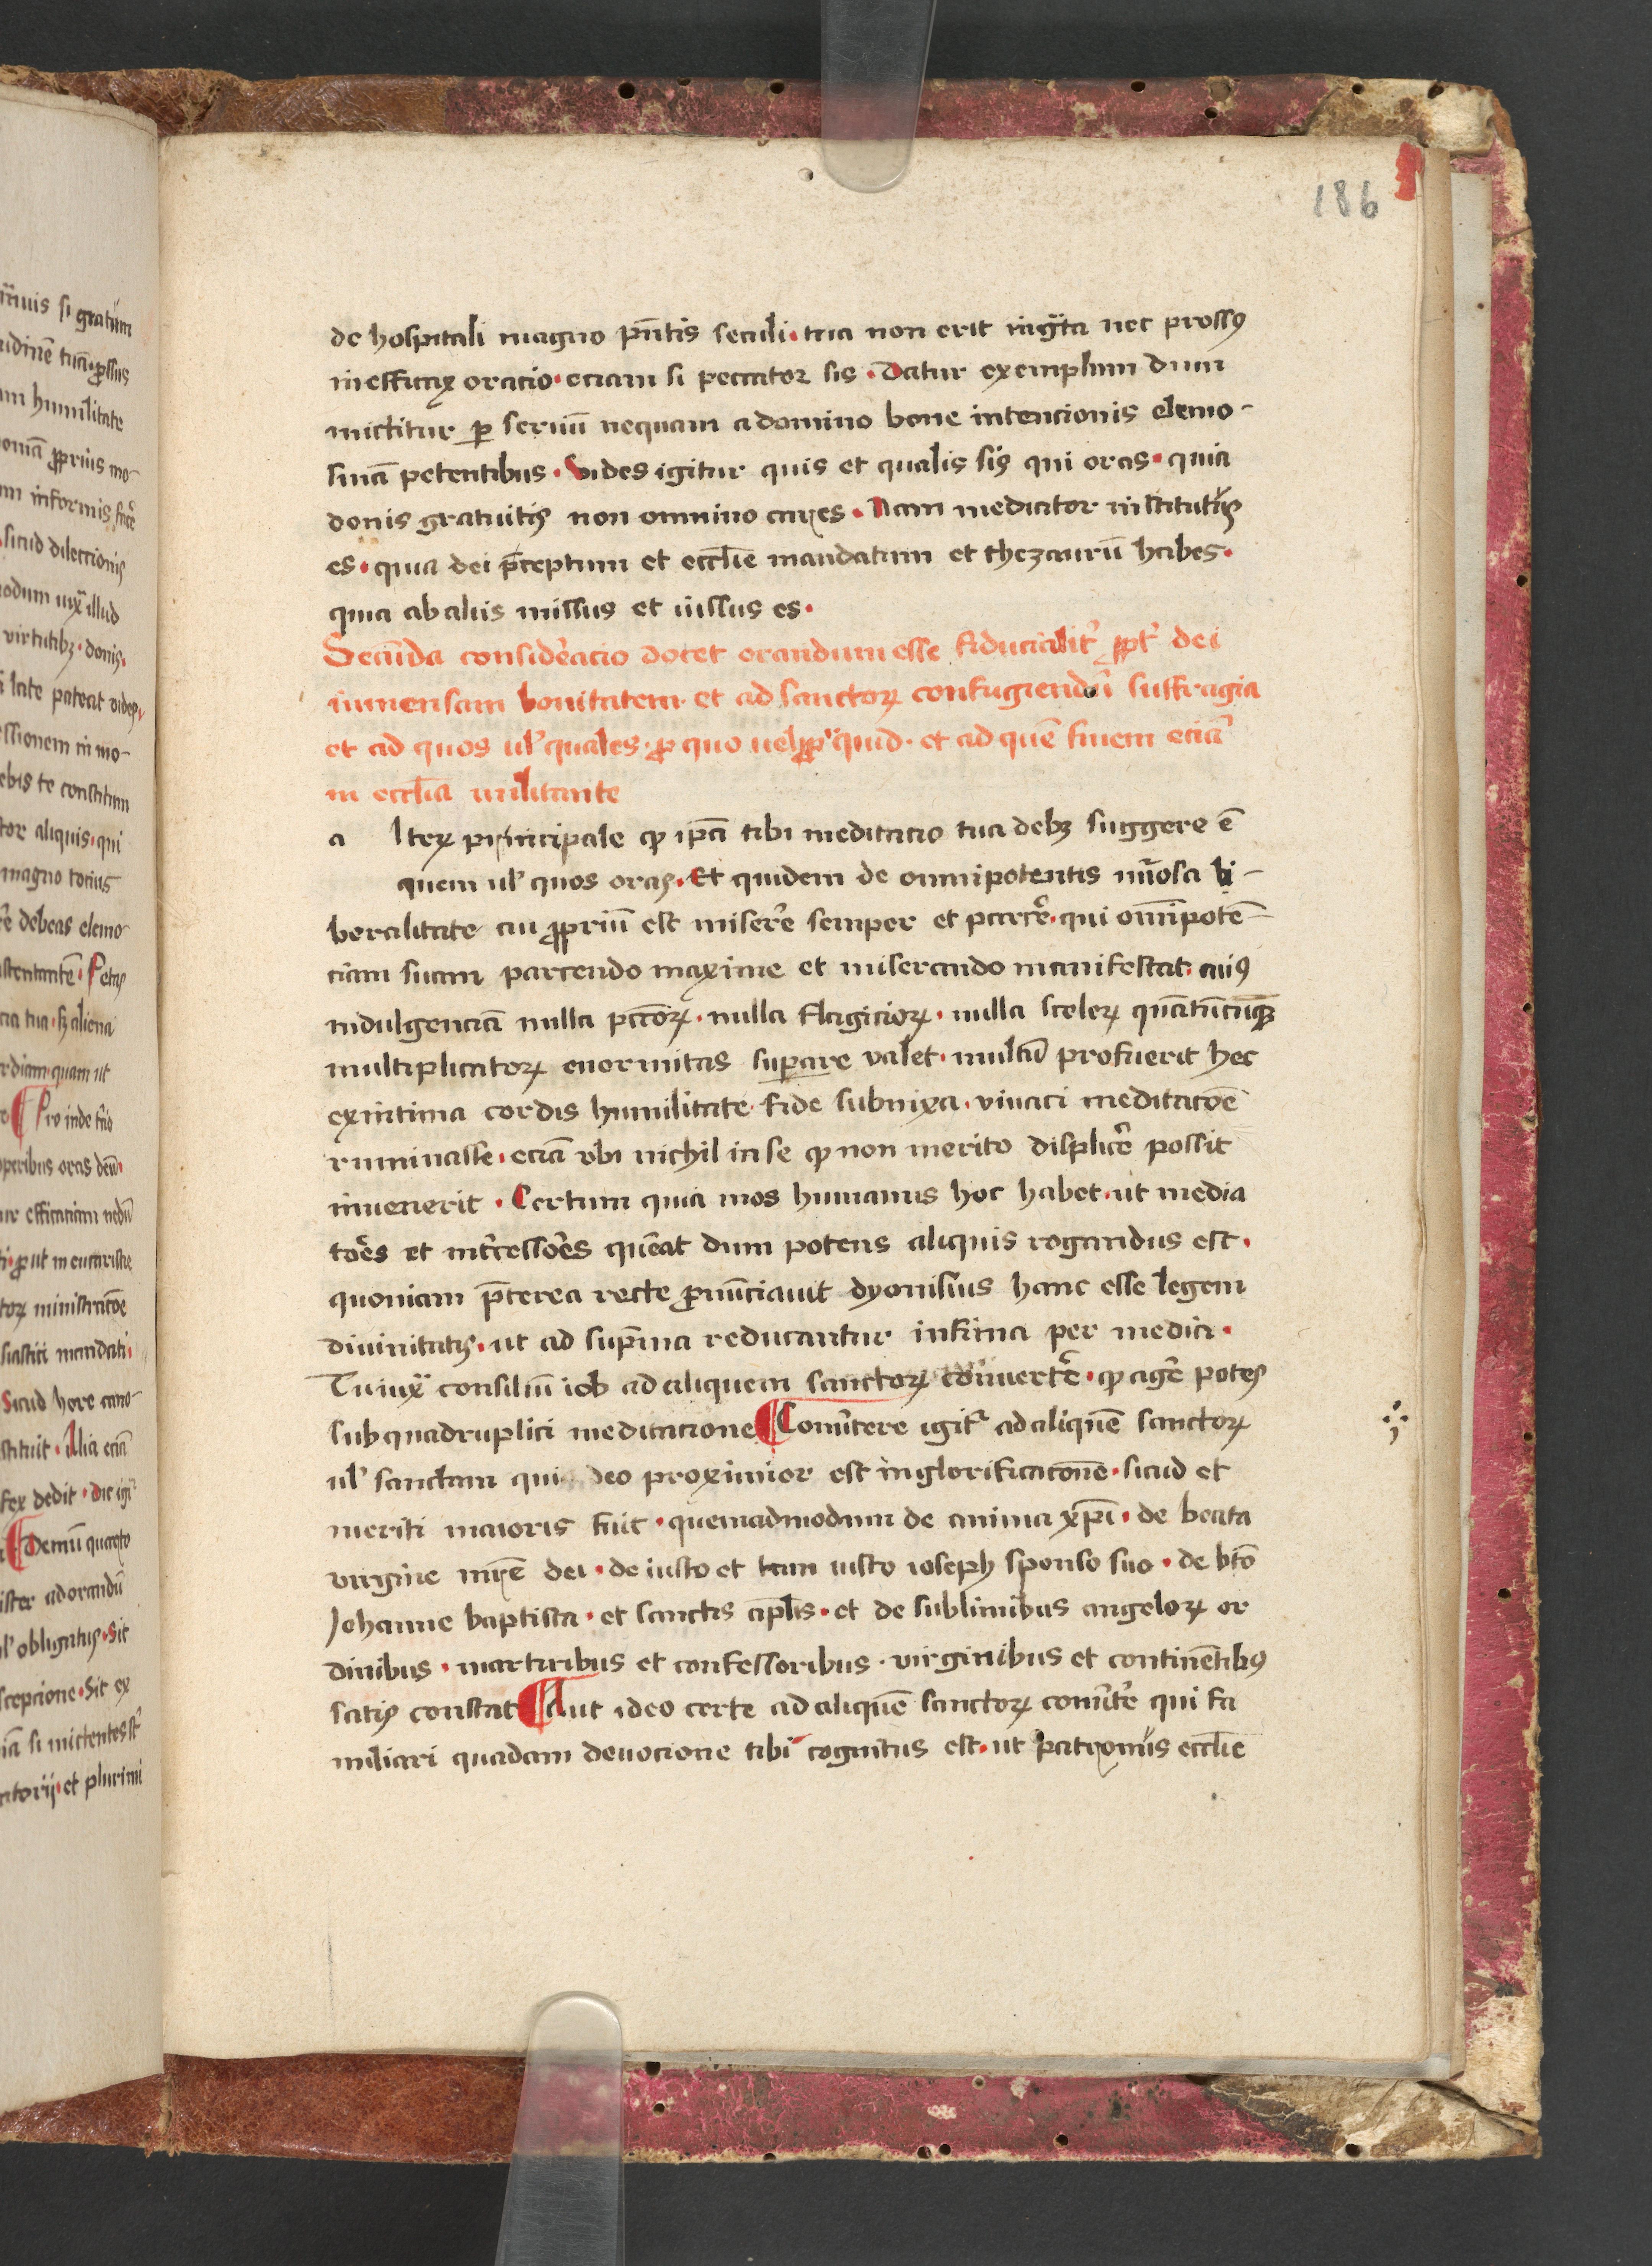 186
de hospitali magno pñtis seculi · tua non erit ingrata nec prossꝰ
inefficax oracio · eciam si peccator sis · Datur exemplum dum
mictitur ꝑ seruū nequam a domino bone intencionis elemo-
sinā petentibus · Vides igitur quis et qualis sis qui oras · quia
donis gratuitis non omnino cares · Nam mediator institutus
es · quia dei p̄ceptum et eccl̄ie mandatum et thezaurū habes ·
quia ab aliis missus et iussus es ·
Secūda consideracio docet orandum esse fiducialit̾ ꝓpt̾ dei
inmensam bonitatem · et ad sanctoꝝ confugiendū suffragia
et ad quos ul̾ quales · ꝓ quo uel ꝓpt̾ quid · et ad quē finem eciā
in eccl̄ia militante
a lteꝝ principale ꝙ ip̄a tibi meditacio tua debꝫ suggere ē
quem ul̾ quos oras · Et quidem de omnipotentis inm̄ensa li-
beralitate cui ꝓpriū est miserēe semper et parcēe · qui om̄ipotē-
ciam suam parcendo maxime et miserando manifestat · cuiꝰ
indulgenciā nulla pcc̄oꝝ · nulla flagicioꝝ · nulla sceleꝝ quātūcūqꝫ
multiplicatoꝝ enormitas suꝑare valet · multū profuerit hec
ex intima cordis humilitate · fide subnixa · viuaci meditacōe
ruminasse · eciā vbi nichil in se ꝙ non merito displicēe possit
inuenerit · Certum quia mos humanus hoc habet · ut media
tōes et int̾cessōes quērat dum potens aliquis rogandus est ·
quoniam p̄terea recte ꝓnūciauit dyonisius hanc esse legem
diuinitatis · ut ad sup̄ma reducantur infima per media ·
Tu iuxͣ consiliū iob ad aliquem sanctoꝝ conuertēe · ꝙ agēe potes
sub quadruplici meditacione ¶ Conūtere igit̾ ad aliquē sanctoꝝ
ul̾ sanctam qui deo proximior est in glorificacōne · sicud et
meriti maioris fuit · quemadmodum de anima xp̄i · de beata
virgine mr̄e dei · de iusto et tam iusto ioseph sponso suo · de bt̄o
Johanne baptista · et sanctis apl̄is · et de sublimibus angeloꝝ or
dinibus · martiribus et confessoribus · virginibus et continētibꝰ
satis constat ¶ Aut ideo certe ad aliquē sanctoꝝ conūt̾e qui fa
miliari quadam deuocione tibi cognitus est · ut patronus eccl̄ie